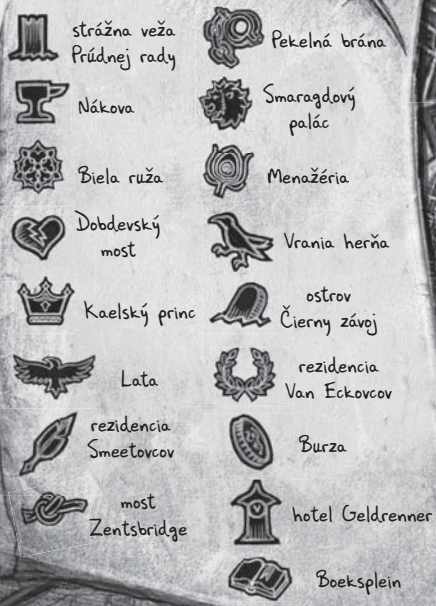 strážna veža
Prúdnej rady
Nákova
Biela ruža
Dobdevský
most
Kaelský princ
Lata
rezidencia
Smeetovcov
most
Zentsbridge
Pekelná brána
Smaragdový
palác
Menažéria
Vrania herňa
ostrov
Čierny závoj
rezidencia
Van Eckovcov
Burza
hotel Geldrenner
Boeksplein